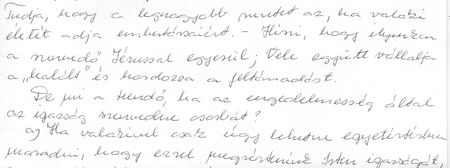 Tudja, hogy a legnagyobb szeretet az, ha valaki
életét adja embertársaiért. – Hiszi, hogy ilyenkor
a szenvedő Jézussal egyesül; Vele együtt vállalja
a „halált" és hordozza a feltámadást.
De mi a teendő, ha az engedelmesség által
az igazság szenvedne csorbát?
a/ Ha valakinek csak úgy lehetne egyetértésben
maradni, hogy ezzel megsértené Isten igazságát,